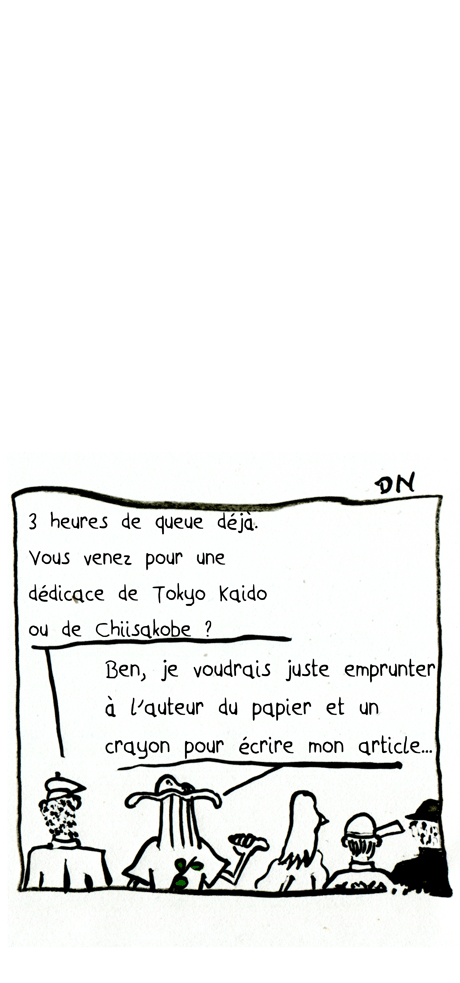 DN
3 heures de queue déjà.
Vous venez pour une
dédicace de Tokyo Kaido
ou de Chiisakobe ?
Ben, je voudrais juste emprunter
à l'auteur du papier et un
crayon pour écrire mon article...